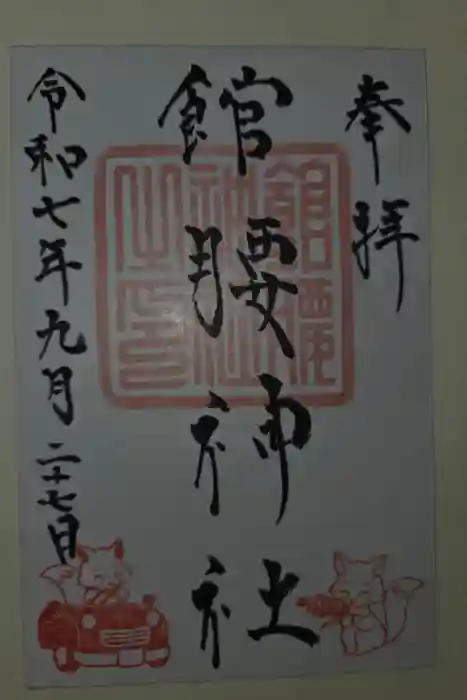 奉拝
館腰神社
館腰神社之印
令和七年九月二十七日